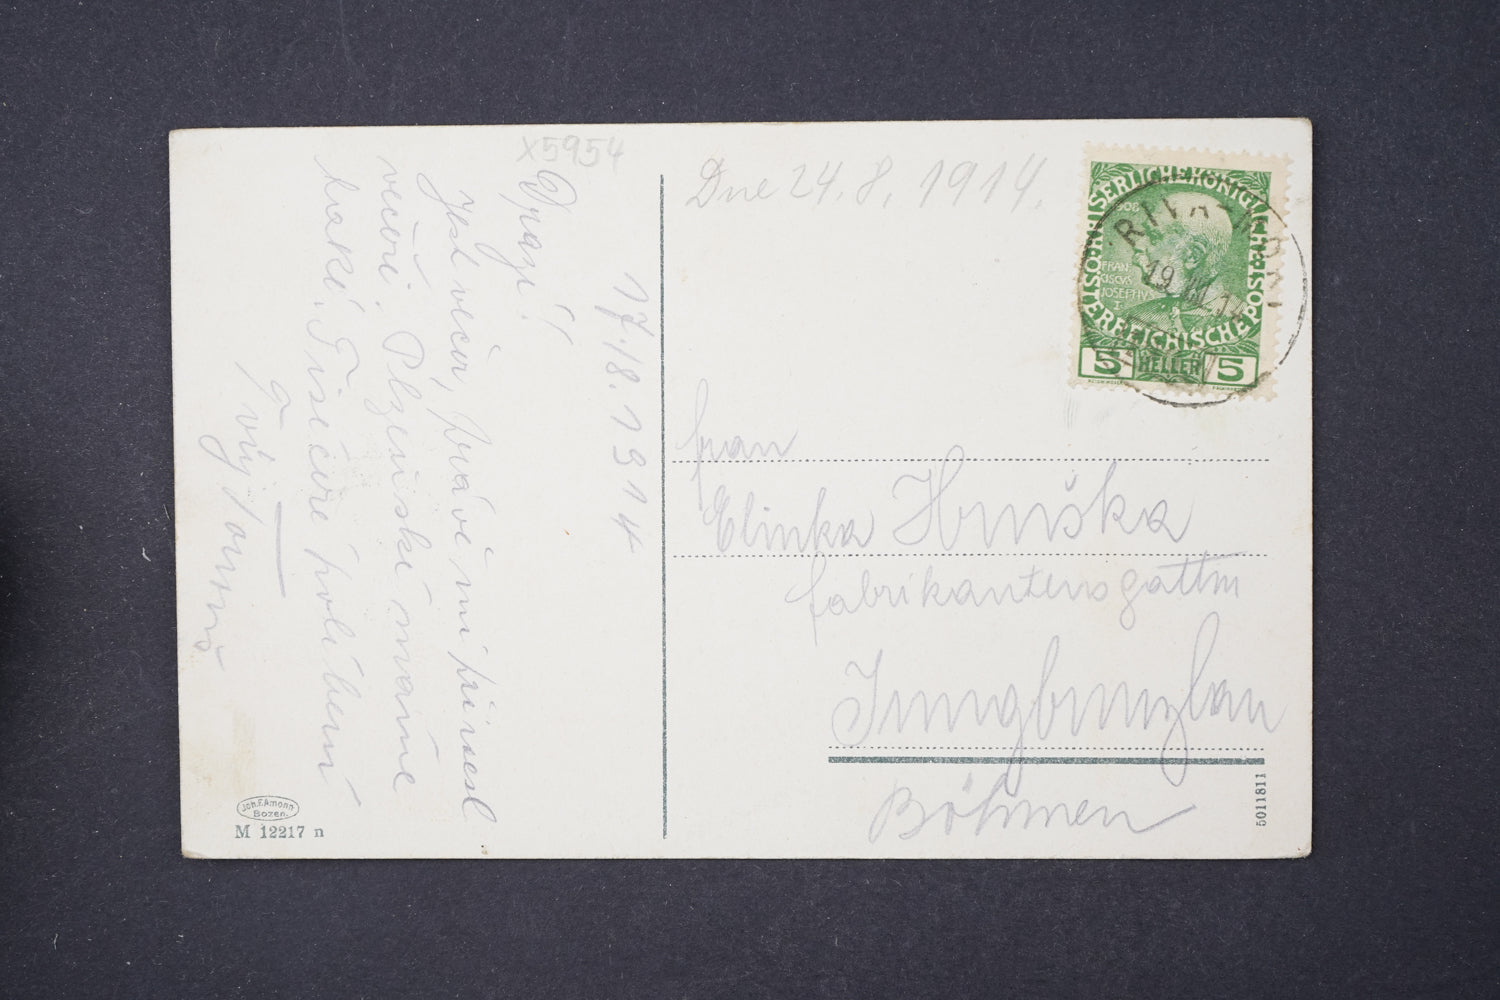 X5954
17./8. 1914
Drazí!
Jest večer, právě mi přinesl
večeři. Plzeňské máme
také. Tisíceré políbení
Tvůj
Dne 24. 8. 1914.
KAISERLICHE KÖNIGLICHE
ÖSTERREICHISCHE POST
1908
FRAN
CISCVS
IOSEPHVS
I
5 HELLER 5
RIVA
19. VIII. 14
Frau
Elinka Hruška
Fabrikantensgattin
Jungbunzlau
Böhmen
Joh. F. Amonn
Bozen.
M 12217 n
5011811